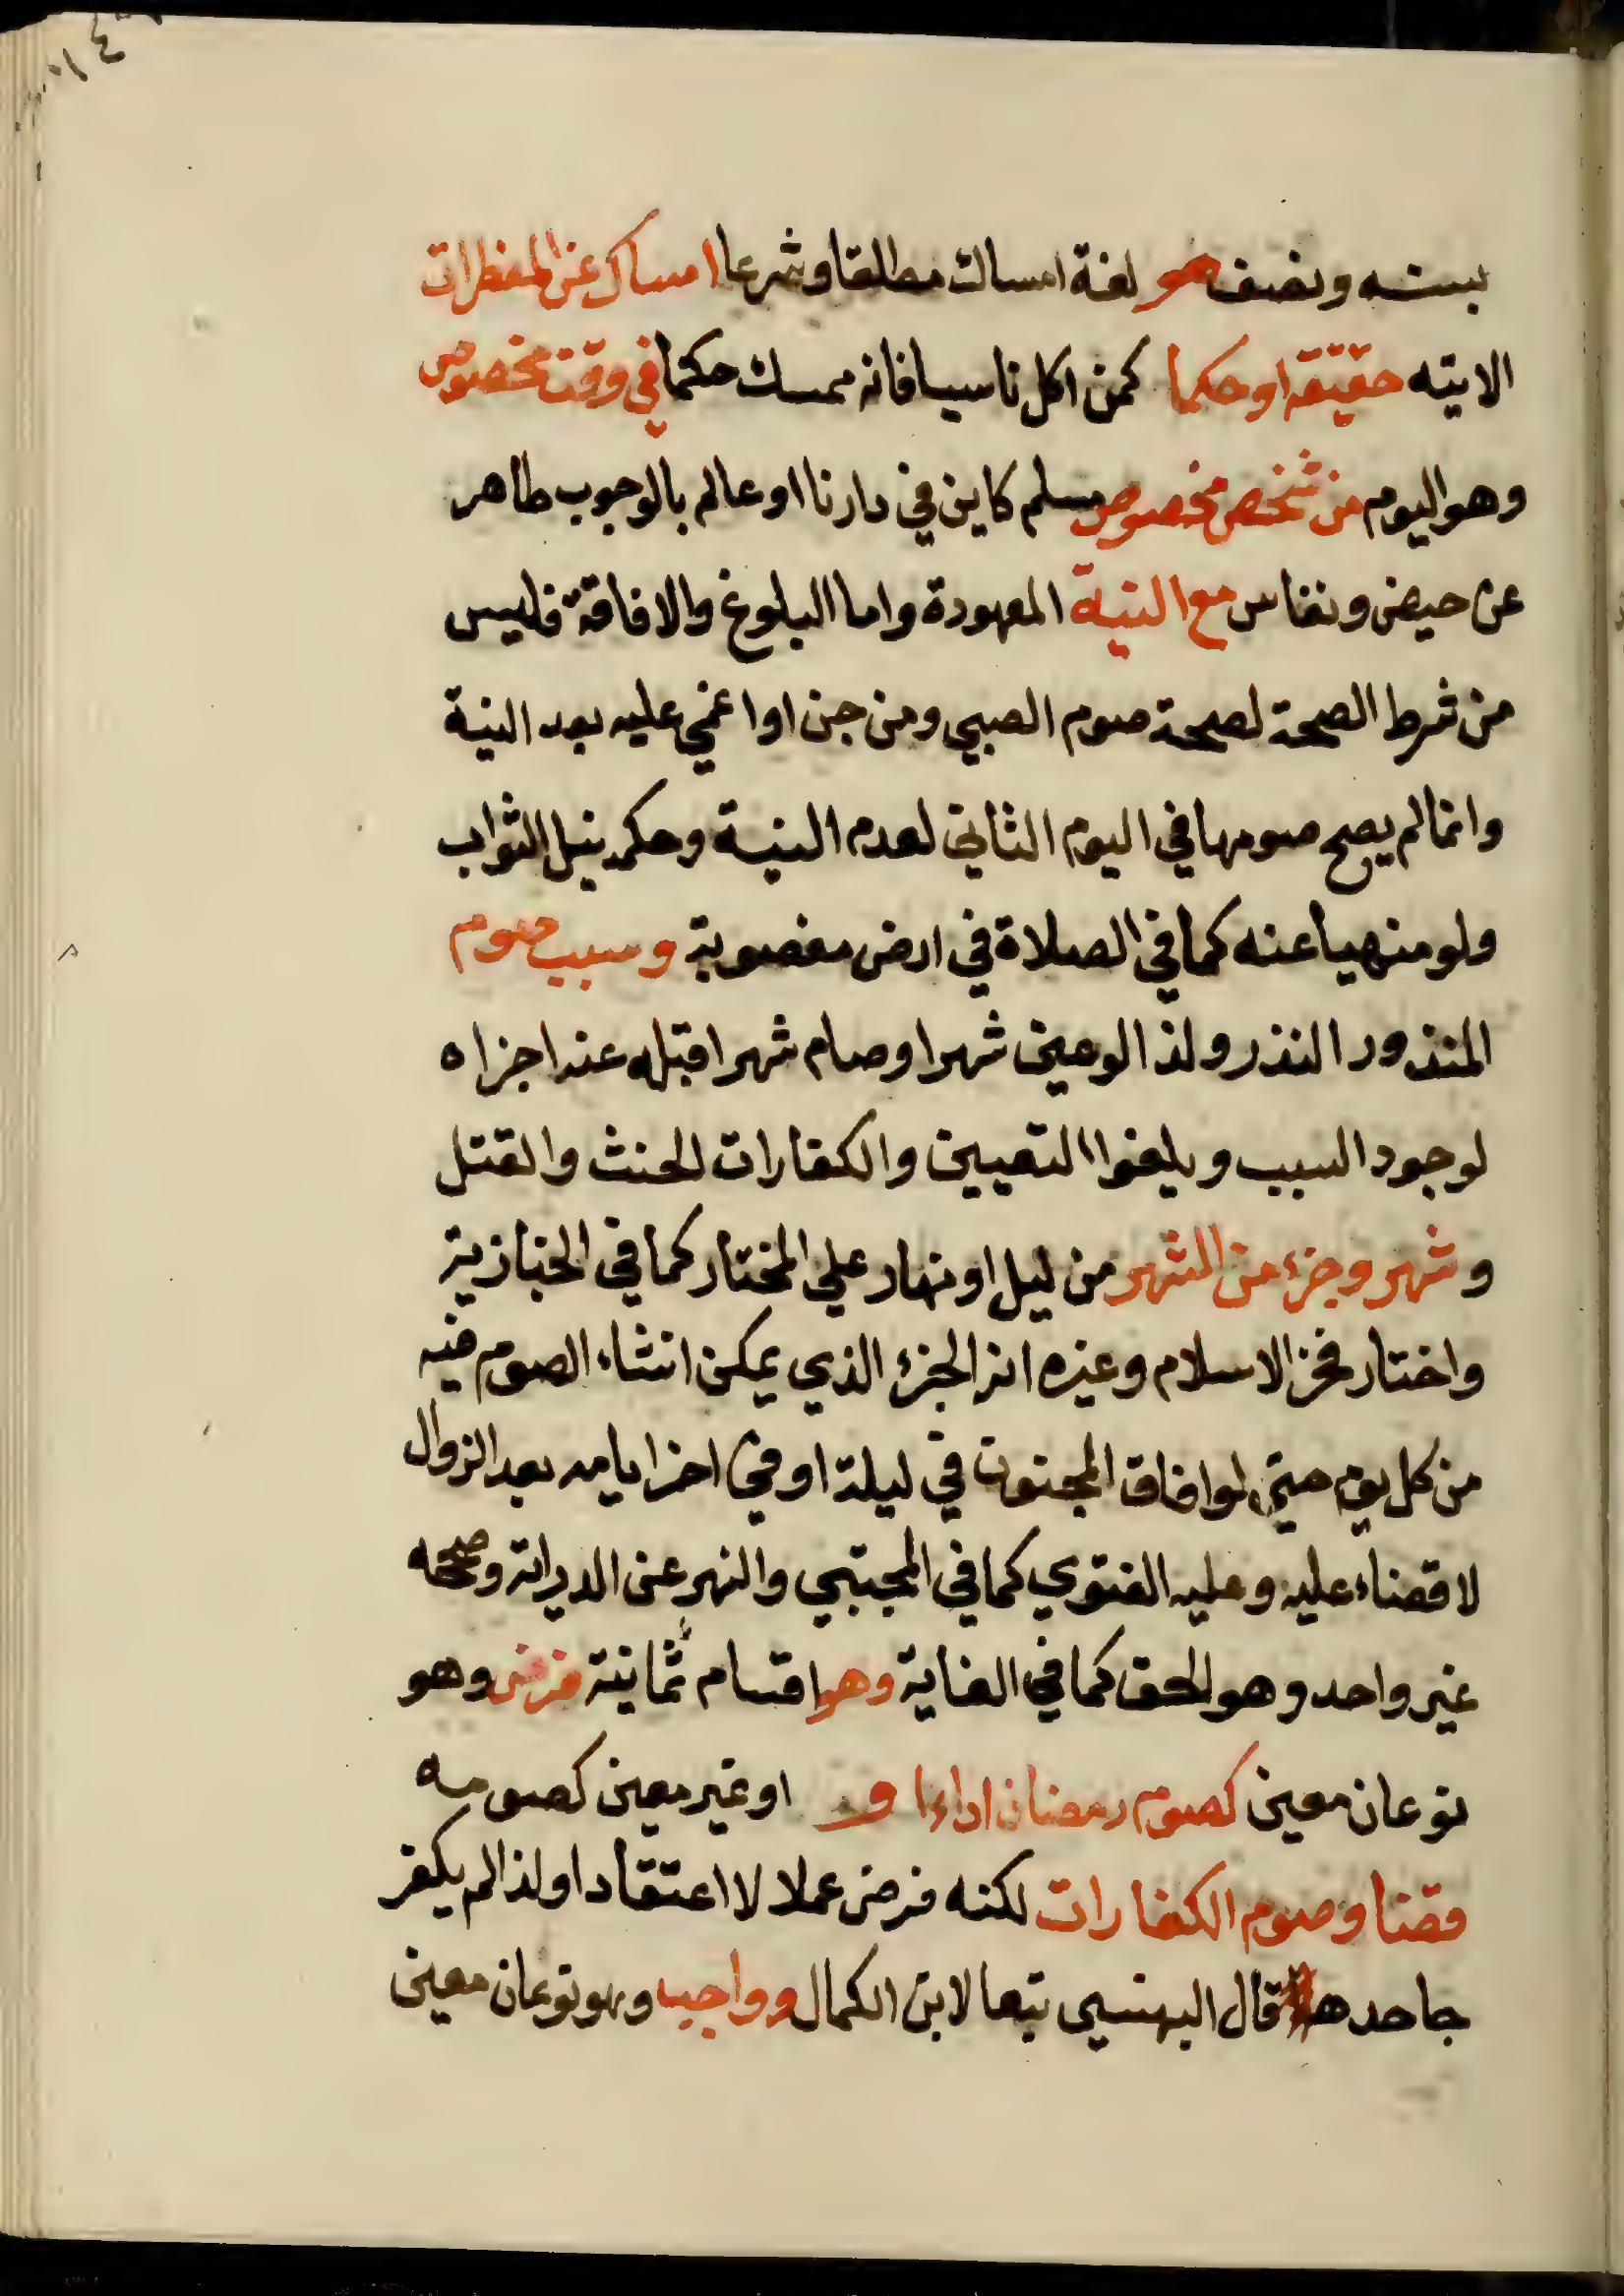 بسنه ونصف هو لغة امساك مطلقا وشرعا امساك عن المفطرات
الاتيه حقيقة او حكما كمن اكل ناسيا فانه ممسك حكما في وقت مخصوص
وهو اليوم من شخص مخصوص مسلم كاين في دارنا او عالم بالوجوب طاهر
عن حيض ونفاس مع النية المعهودة واما البلوغ والافاقة فليس
من شرط الصحة لصحة صوم الصبي ومن جن او اغمي عليه بعد النية
وانما لم يصح صومهما في اليوم الثاني لعدم النية وحكمه نيل الثواب
ولو منهيا عنه كما في الصلاة في ارض مغصوبة وسبب صوم
المنذور النذر ولذا لو عين شهرا وصام شهرا قبله عنه اجزاه
لوجود السبب ويلغوا التعيين والكفارات الحنث والقتل
وشهر وجزء من الشهر من ليل او نهار على المختار كما في الخبازية
واختار فخر الاسلام وغيره انه الجزء الذي يمكن انشاء الصوم فيه
من كل يوم حتى لو افاق المجنون في ليلة او في اخر ايامه بعد الزوال
لا قضاء عليه وعليه الفتوي كما في المجتبي والنهر عن الدراية وصححه
غير واحد وهو الحق كما في الغاية وهو اقسام ثمانية فرض وهو
نوعان معين كصوم رمضان اداءا و او غير معين كصومه
قضا وصوم الكفارات لكنه فرض عملا لا اعتقادا ولذا لم يكفر
جاحدها قال البهنسي تبعا لابن الكمال وواجب وهو نوعان معين